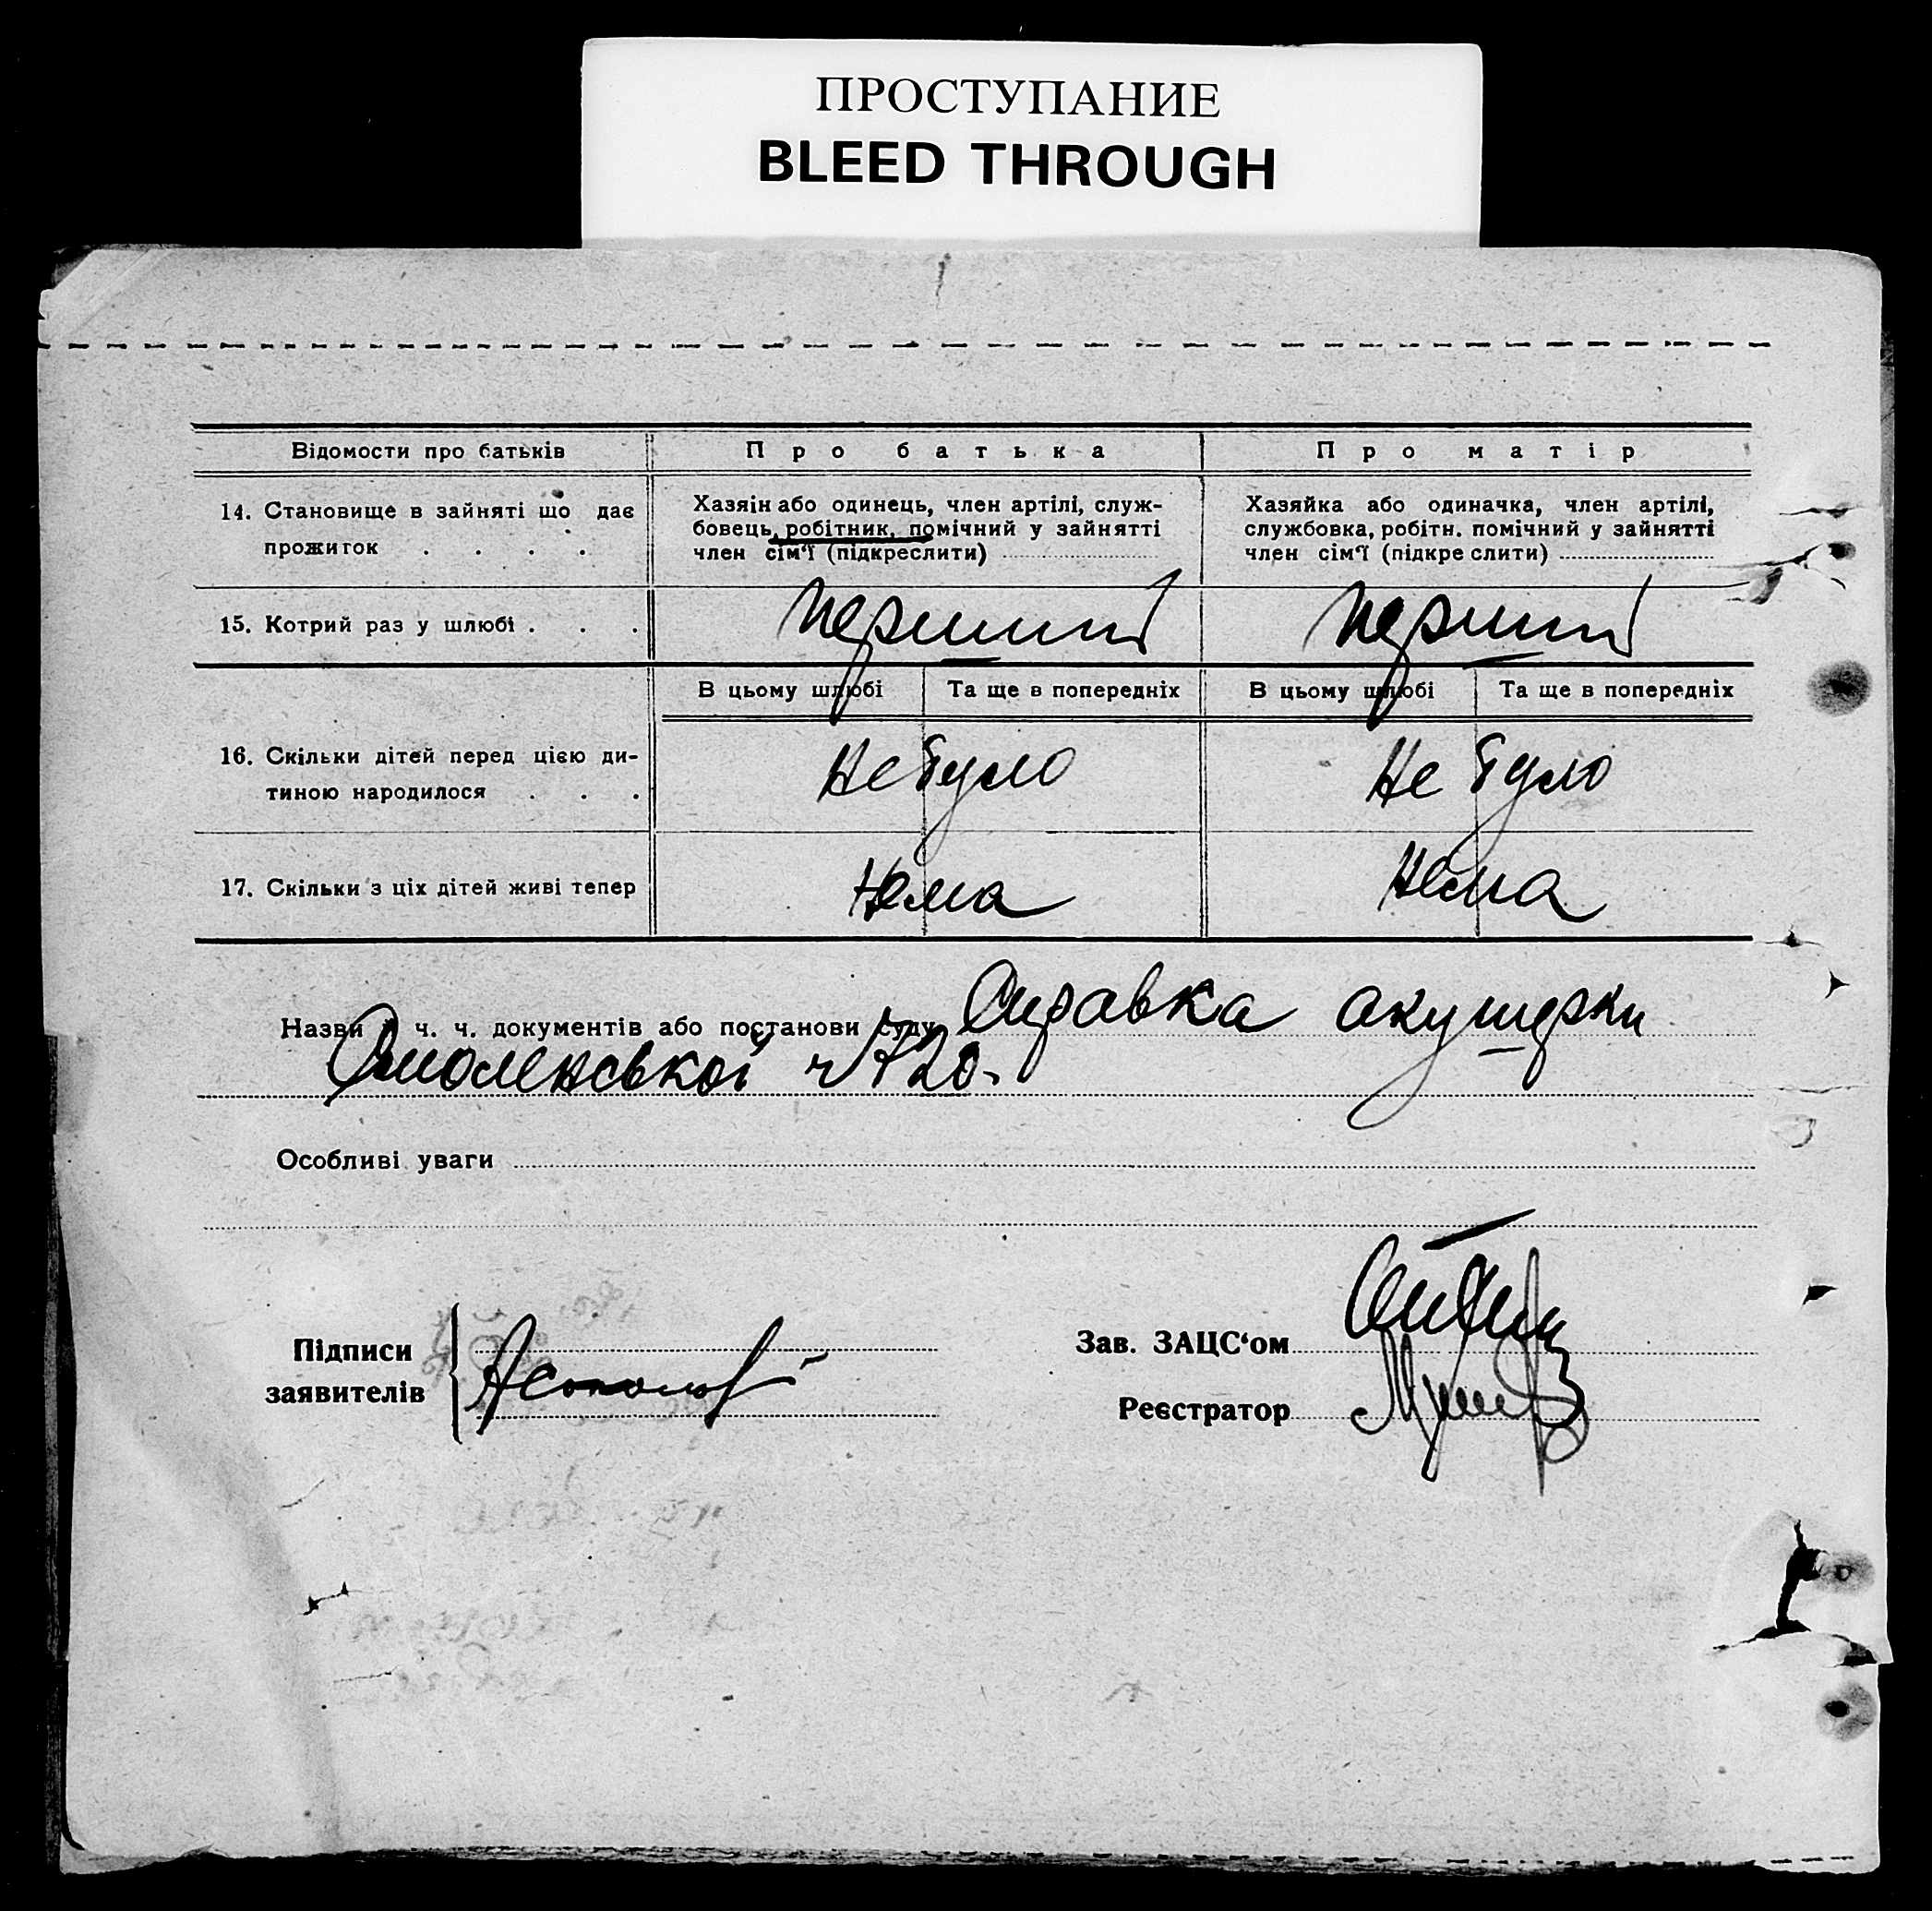 ПРОСТУПАНИЕ
BLEED THROUGH
Відомости про батьків
Про батька
Про матір
14. Становище в зайняті що дає
прожиток . . . .
Хазяін або одинець, член артілі, служ-
бовець, робітник, помічний у зайнятті
член сім'ї (підкреслити)
Хазяйка або одиначка, член артілі,
службовка, робітн. помічний у зайнятті
член сім'ї (підкре слити)
15. Котрий раз у шлюбі . . .
перший
перший
В цьому шлюбі
Та ще в попередніх
В цьому шлюбі
Та ще в попередніх
16. Скільки дітей перед цією ди-
тиною народилося . . .
Не було
Не було
17. Скільки з ціх дітей живі тепер
Нема
Нема
Назви й ч. ч. документів або постанови суду Справка акушерки
Смоленської 20.
Особливі уваги
Підписи
заявителів
Зав. ЗАЦС'ом
Реєстратор